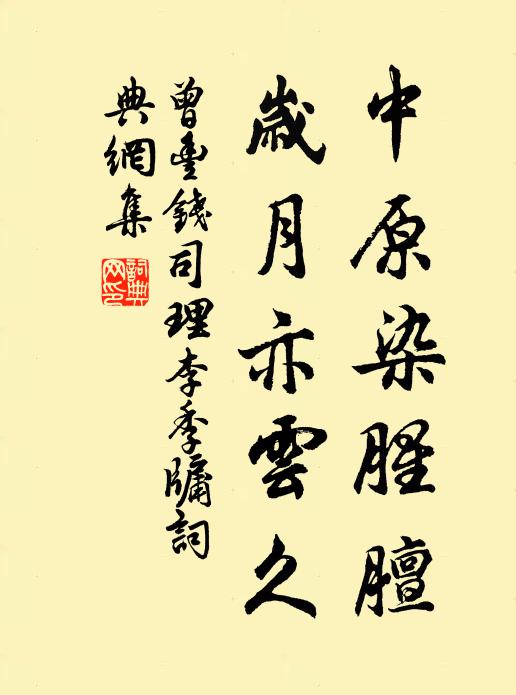 中原染腥膻
歲月亦雲久
曾豐錢司理李季牖詞
典網集
詞典网印